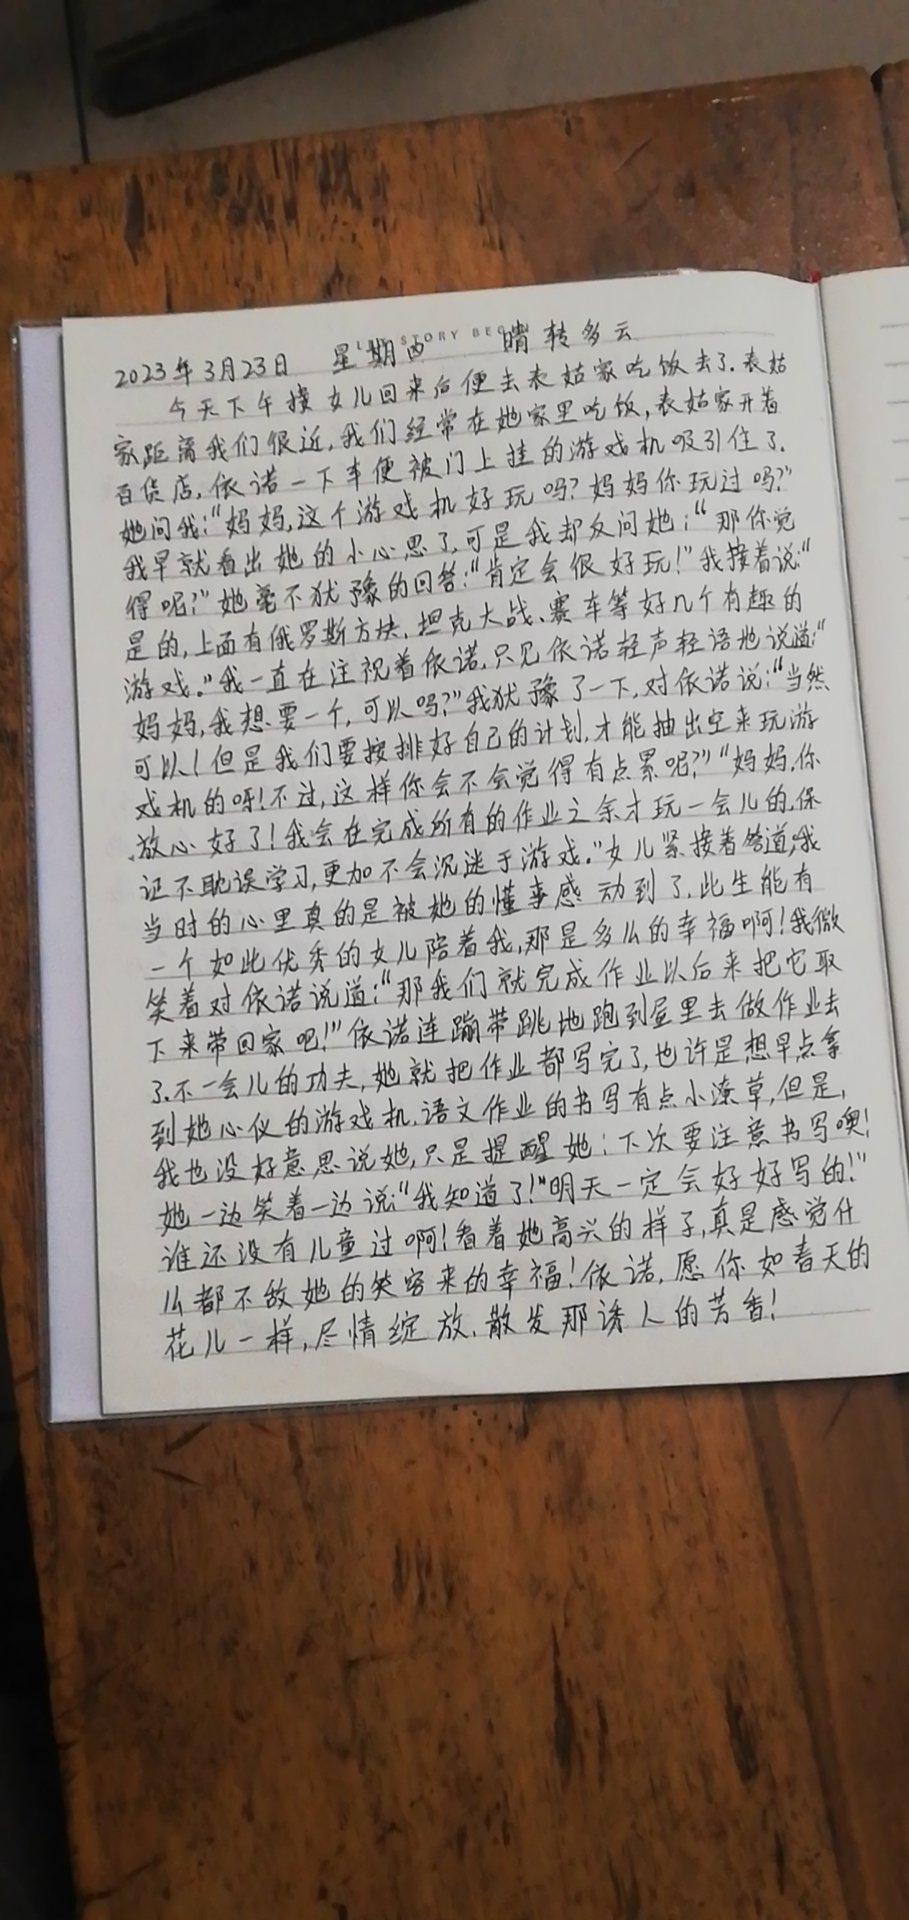 STORY BEG
2023年3月23日 星期四 晴转多云
今天下午接女儿回来后便去表姑家吃饭去了.表姑
家距离我们很近,我们经常在她家里吃饭,表姑家开着
百货店,依诺一下车便被门上挂的游戏机吸引住了.
她问我:“妈妈,这个游戏机好玩吗?妈妈你玩过吗?”
我早就看出她的小心思了,可是我却反问她:“那你觉
得呢?”她毫不犹豫的回答:“肯定会很好玩!”我接着说:“
是的,上面有俄罗斯方块、坦克大战、赛车等好几个有趣的
游戏。”我一直在注视着依诺,只见依诺轻声轻语地说道:“
妈妈,我想要一个,可以吗?”我犹豫了一下,对依诺说:“当然
可以!但是我们要按排好自己的计划,才能抽出空来玩游
戏机的呀!不过,这样你会不会觉得有点累呢?”“妈妈,你
放心好了!我会在完成所有的作业之余才玩一会儿的,保
证不耽误学习,更加不会沉迷于游戏。”女儿紧接着答道,我
当时的心里真的是被她的懂事感动到了,此生能有
一个如此优秀的女儿陪着我,那是多么的幸福啊!我微
笑着对依诺说道:“那我们就完成作业以后来把它取
下来带回家吧!”依诺连蹦带跳地跑到屋里去做作业去
了.不一会儿的功夫,她就把作业都写完了,也许是想早点拿
到她心仪的游戏机,语文作业的书写有点小潦草,但是,
我也没好意思说她,只是提醒她:下次要注意书写噢!
她一边笑着一边说:“我知道了!”明天一定会好好写的!”
谁还没有儿童过啊!看着她高兴的样子,真是感觉什
么都不敌她的笑容来的幸福!依诺,愿你如春天的
花儿一样,尽情绽放,散发那诱人的芳香!